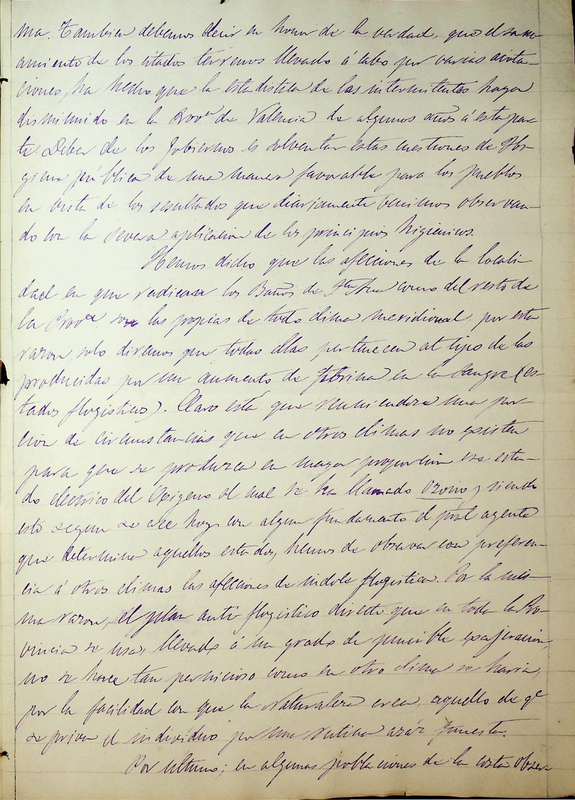 ma. Tambien debemos decir en honor de la verdad, que el sane-
amiento de los citados terrenos llevado á cabo por varias asocia-
ciones, ha hecho que la estadistica de las intermitentes haya
disminuido en la Prov.ª de Valencia de algunos años á esta par-
te. Deber de los Gobiernos es solventar estas cuestiones de Hi-
giene pública de una manera favorable para los pueblos
en vista de los resultados que diariamente venimos observan-
do con la severa aplicacion de los principios higienicos.
Hemos dicho que las afecciones de la locali-
dad en que radican los Baños de Sta Ana como del resto de
la Prov.ª son las propias de todo clima meridional, por esta
razon solo diremos que todas ellas pertenecen al tipo de las
producidas por un aumento de fibrina en la sangre (es-
tados flogisticos). Claro está que reuniendose una por-
cion de circunstancias que en otros climas no existen
para que se produzca en mayor proporcion ese esta-
do electrico del Oxigeno al cual se ha llamado Ozono, y siendo
esto segun se cree hoy con algun fundamento el agente
que determina aquellos estados, hemos de observar con preferen-
cia á otros climas las afecciones de indole flogistica. Por la mis-
ma razon, el plan anti-flogistico directo que en toda la Pro-
vincia se usa, llevado á un grado de punible exajeracion
no se hace tan pernicioso como en otro clima se haria,
por la facilidad con que la naturaleza crea aquello de q.e
se priva el individuo por una rutina azáz funesta.
Por ultimo; en algunas poblaciones de la costa obser-